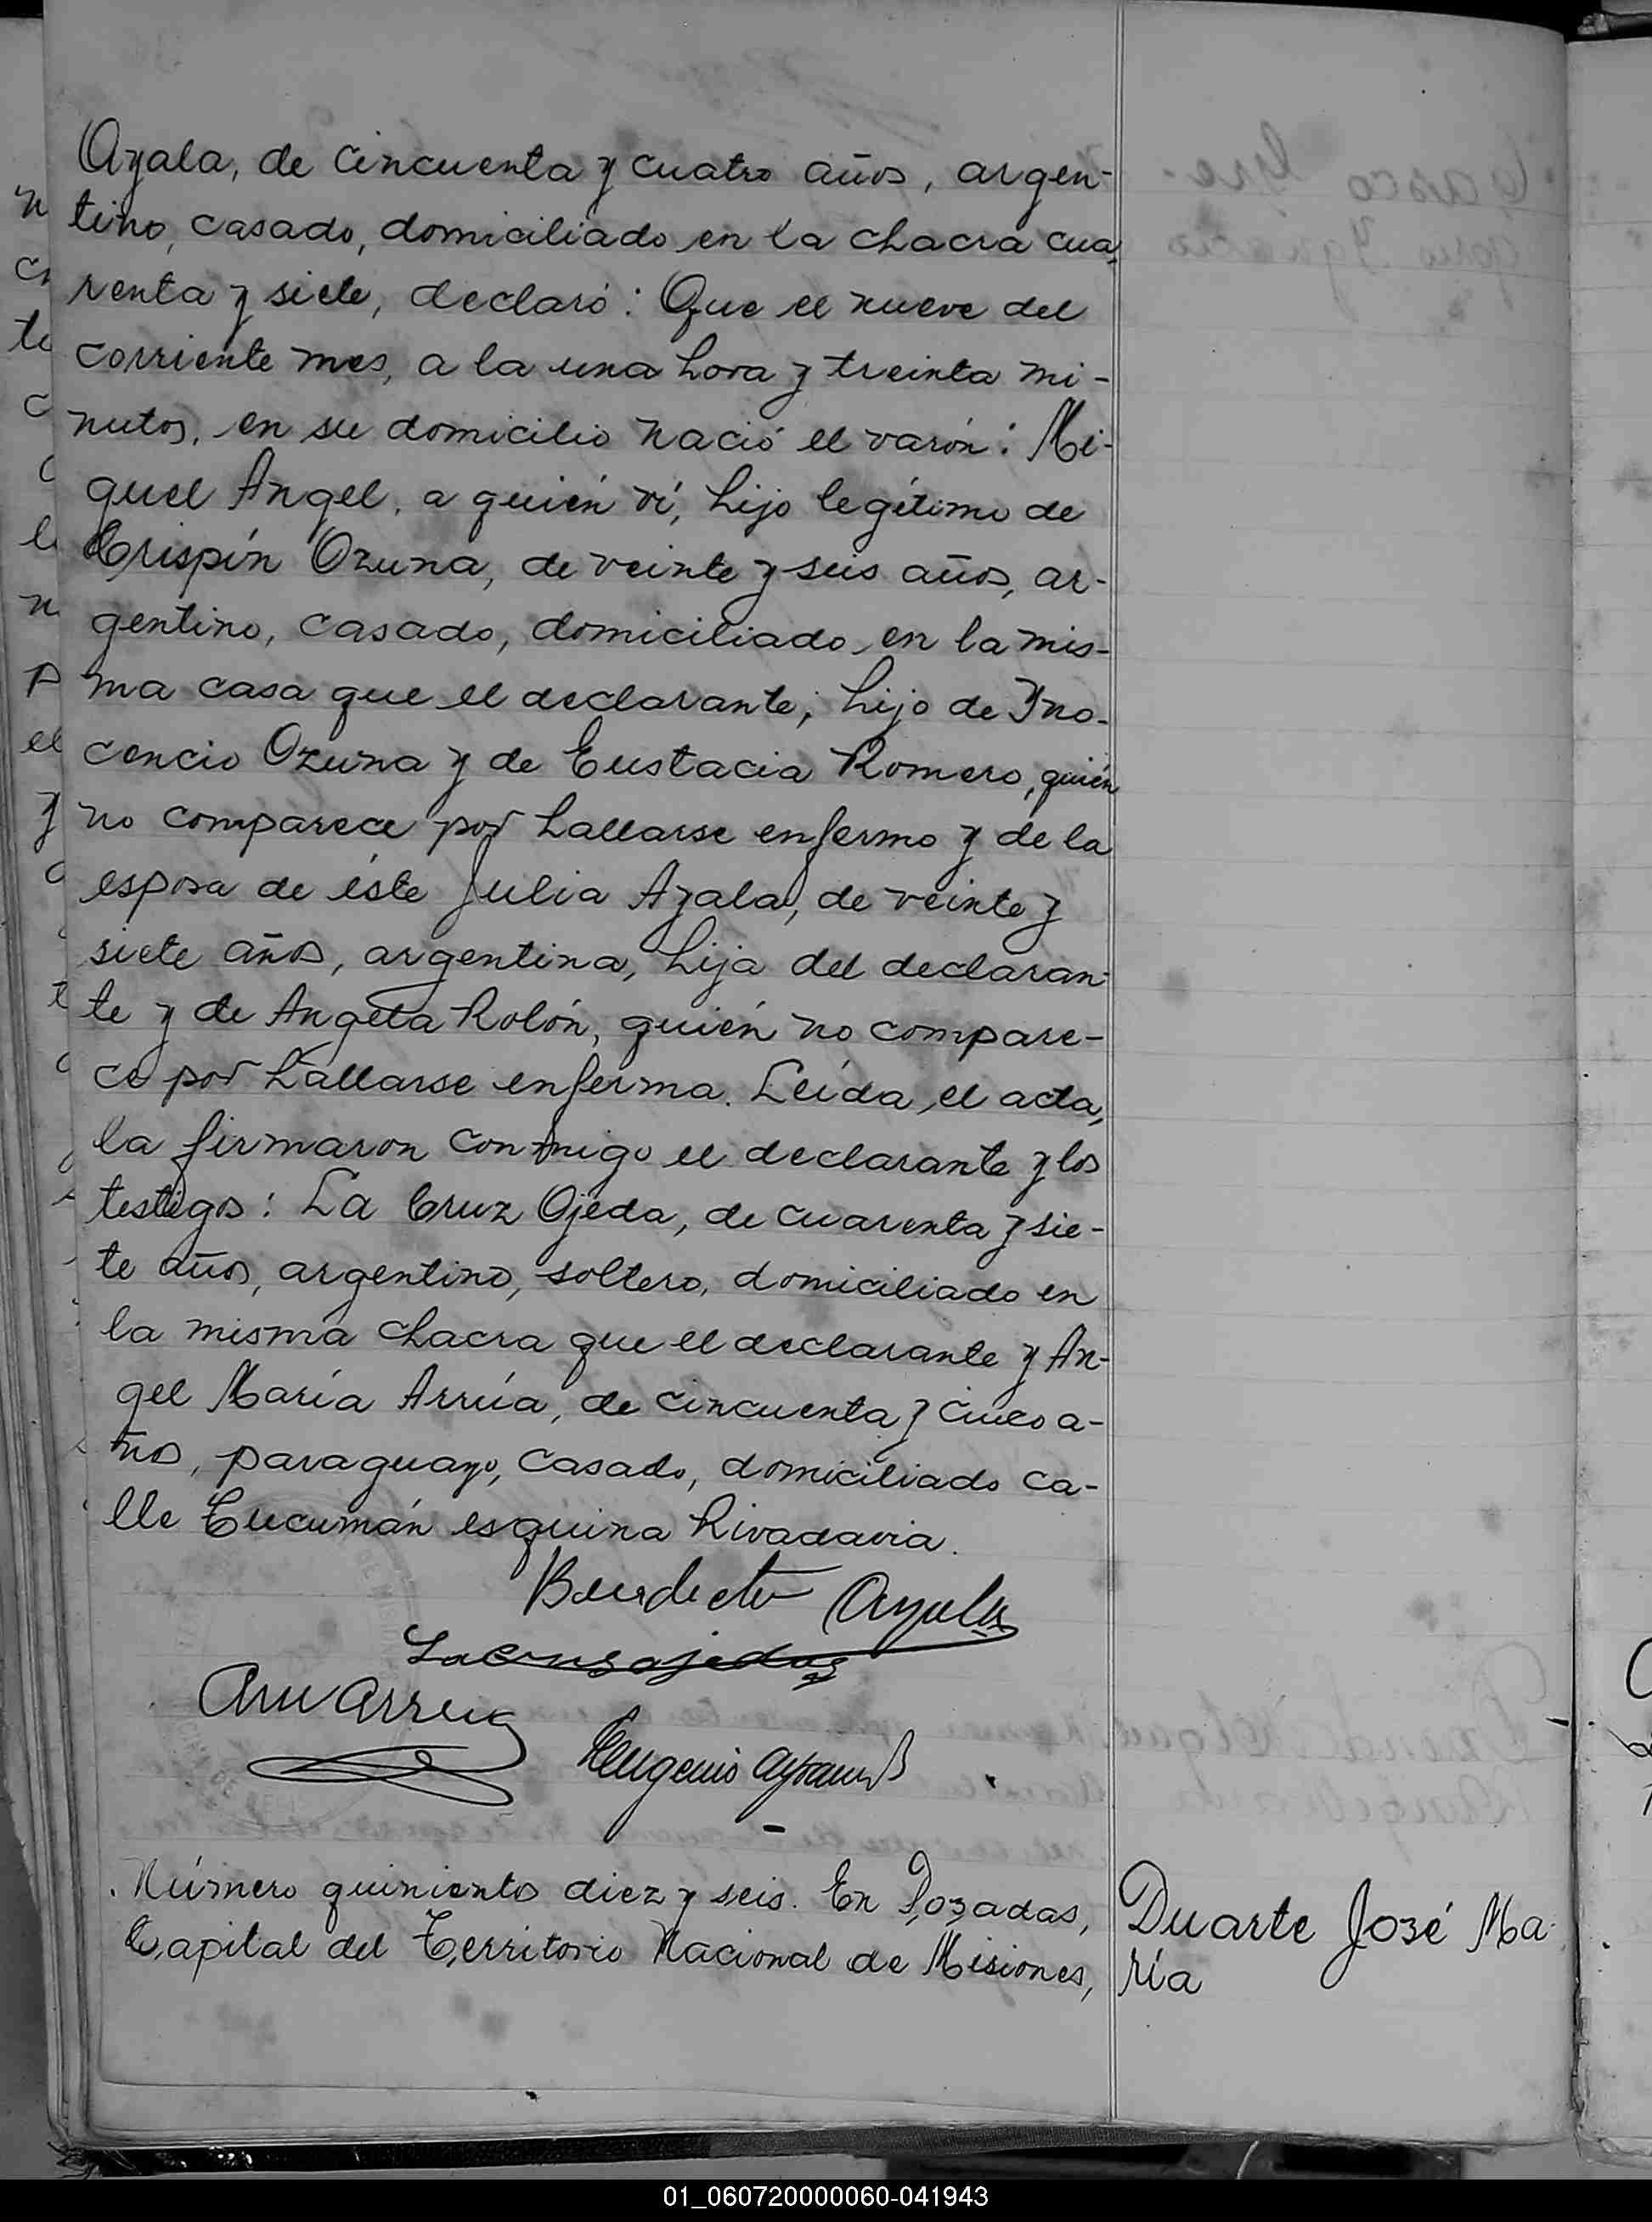 Ayala, de cincuenta y cuatro años, argen-
tino, casado, domiciliado en la chacra cua-
renta y siete, declaró: Que el nueve del
corriente mes, a la una hora y treinta mi-
nutos, en su domicilio nació el varón: Mi-
guel Angel, a quién ví, hijo legítimo de
Crispín Ozuna, de veinte y seis años, ar-
gentino, casado, domiciliado en la mis-
ma casa que el declarante, hijo de Yno-
cencio Ozuna y de Eustacia Romero, quién
no comparece por hallarse enfermo y de la
esposa de éste Julia Ayala, de veinte y
siete años, argentina, hija del declaran-
te y de Angela Rolón, quién no compare-
ce por hallarse enferma. Leída el acta,
la firmaron conmigo el declarante y los
testigos: La Cruz Ojeda, de cuarenta y sie-
te años, argentino, soltero, domiciliado en
la misma chacra que el declarante y An-
gel María Arrúa, de cincuenta y cinco a-
ños, paraguayo, casado, domiciliado ca-
lle Tucumán esquina Rivadavia.
Benedicto Ayala
La Cruz Ojeda
Arrua
Eugenio
Número quinientos diez y seis. En Posadas,
Capital del Territorio Nacional de Misiones,
Duarte José Ma-
ría
01_060720000060-041943